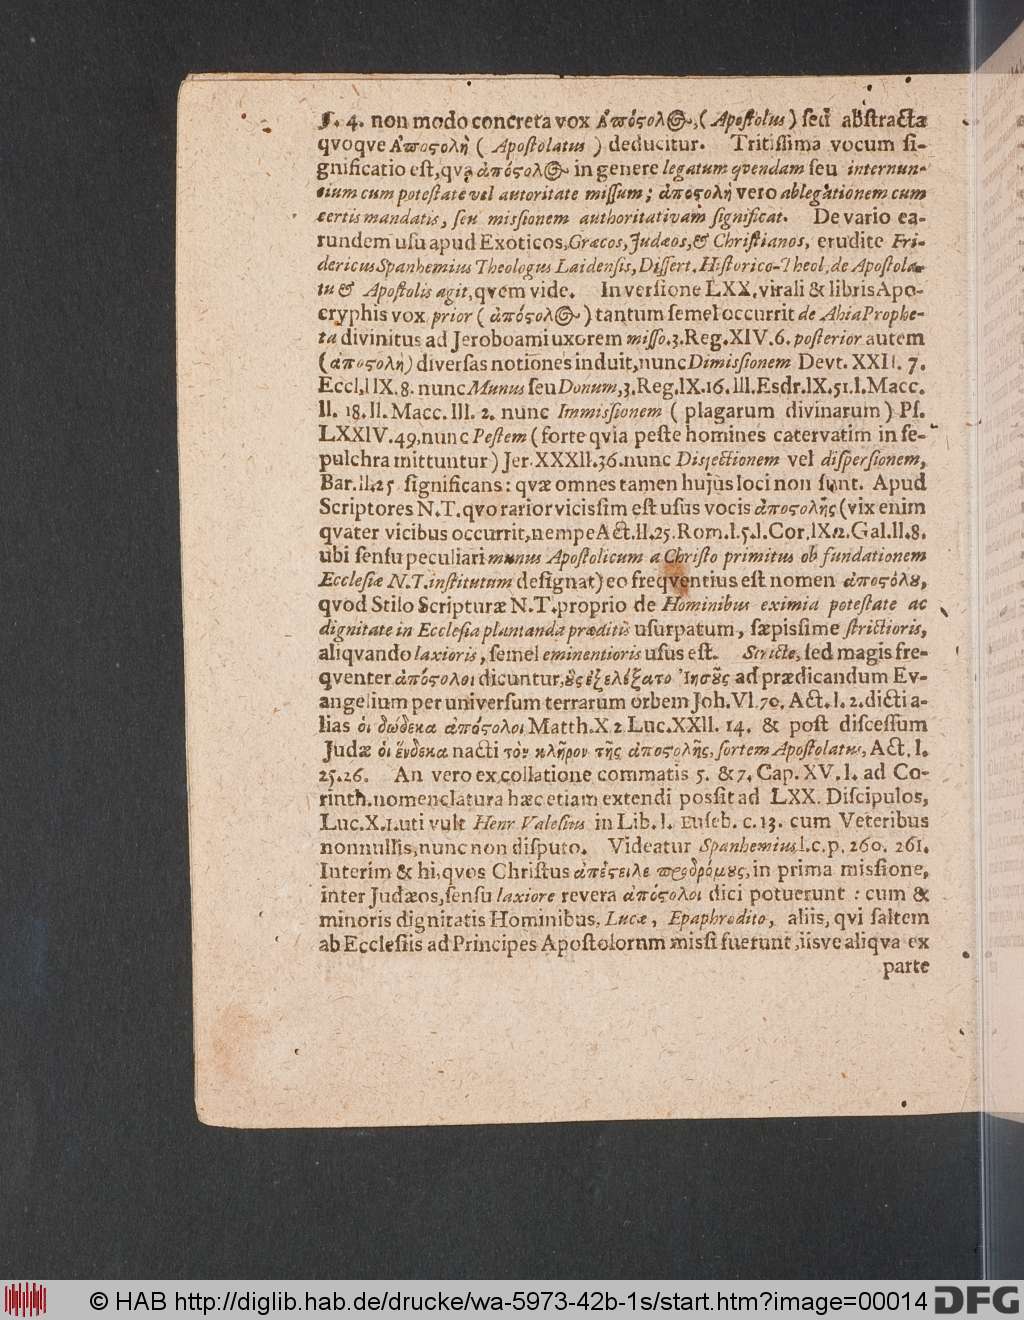 ſ. 4. non modo concreta vox Απόςολ⊕, (Apoſtolus) ſed abſtracta
qvoqve Αποςολὴ (Apoſtolatus) deducitur. Tritiſſima vocum ſi-
gnificatio eſt, qvą ἀπόςολ⊕ in genere legatum qvendam ſeu internun-
cium cum poteſtate vel autoritate miſſum; ἀποςολή vero ablegationem cum
certis mandatis, ſeu miſſionem authoritativam ſignificat. De vario ea-
rundem uſu apud Exoticos, Græcos, Judæos, & Chriſtianos, erudite Fri-
dericus Spanhemius Theologus Laidenſis, Diſſert. Hiſtorico-Theol. de Apoſtola-
tu & Apoſtolis agit, qvem vide. In verſione LXX. virali & libris Apo-
cryphis vox prior (ἀπόςολ⊕) tantum ſemel occurrit de Ahia Prophe-
ta divinitus ad Jeroboami uxorem miſſo. 3. Reg. XIV. 6. poſterior autem
(ἀποςολή) diverſas notiones induit, nunc Dimiſſionem Devt. XXII. 7.
Eccl. IIX. 8. nunc Munus ſeu Donum, 3. Reg. IX. 16. III. Esdr. IX. 51. I. Macc.
II. 18. II. Macc. III. 2. nunc Immiſſionem (plagarum divinarum) Pſ.
LXXIV. 49, nunc Peſtem (forte qvia peſte homines catervatim in ſe-
pulchra mittuntur) Jer. XXXII. 36. nunc Disjectionem vel diſperſionem,
Bar. II. 25 ſignificans: qvæ omnes tamen hujus loci non ſunt. Apud
Scriptores N. T. qvo rarior viciſſim eſt uſus vocis ἀποςολῆς (vix enim
qvater vicibus occurrit, nempe Act. II. 25. Rom. I. 5. I. Cor. IX. 2. Gal. II. 8.
ubi ſenſu peculiari munus Apoſtolicum a Chriſto primitus ob fundationem
Eccleſiæ N. T. inſtitutum deſignat) eo freqventius eſt nomen ἀποςόλȣ,
qvod Stilo Scripturæ N. T. proprio de Hominibus eximia poteſtate ac
dignitate in Eccleſia plantanda præditis uſurpatum, ſæpiſſime ſtrictioris,
aliqvando laxioris, ſemel eminentioris uſus eſt. Stricte, ſed magis fre-
qventer ἀπόςολοι dicuntur, ȣ̔ς ἐξελέξατο Ἰησȣ͂ς ad prædicandum Ev-
angelium per univerſum terrarum orbem Joh. VI. 70. Act. I. 2. dicti a-
lias οἱ δώδεκα ἀπόςολοι Matth. X. 2. Luc. XXII. 14. & poſt diſceſſum
Judæ οἱ ἕνδεκα nacti τὸν κλῆρον τῆς ἀποςολῆς, ſortem Apoſtolatus, Act. I.
25. 26. An vero ex collatione commatis 5. & 7. Cap. XV. I. ad Co-
rinth. nomenclatura hæc etiam extendi poſſit ad LXX. Diſcipulos,
Luc. X. 1. uti vult Henr Valeſius in Lib. I. Euſeb. c. 13. cum Veteribus
nonnullis, nunc non diſputo. Videatur Spanhemius l. c. p. 260. 261.
Interim & hi, qvos Chriſtus ἀπέςειλε προδρόμȣς, in prima miſſione,
inter Judæos, ſenſu laxiore revera ἀπόςολοι dici potuerunt: cum &
minoris dignitatis Hominibus, Lucæ, Epaphrodito, aliis, qvi ſaltem
ab Eccleſiis ad Principes Apoſtolornm miſſi fuerunt, iisve aliqva ex
parte
© HAB http://diglib.hab.de/drucke/wa-5973-42b-1s/start.htm?image=00014
DFG